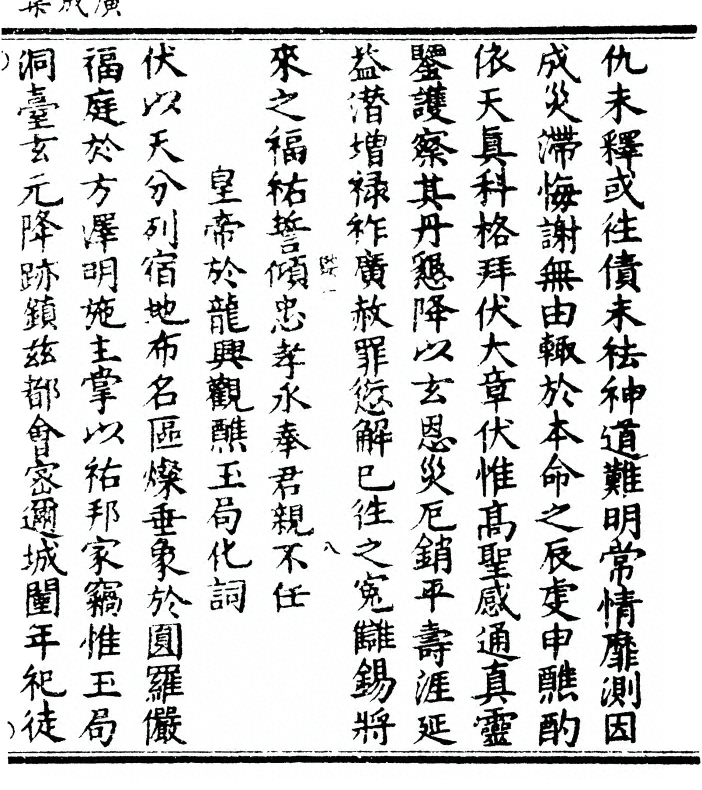 仇未釋或徃債未祛神道難明常情靡測因
成災滯悔謝無由輙於本命之辰虔申醮酌
依天眞科格拜伏大章伏惟髙聖感通真靈
鑒護察其丹懇降以玄恩災厄銷平壽涯延
益潛增禄祚廣赦罪愆解已徃之寃讎錫將
來之福祐誓傾忠孝永奉君親不任
八
皇帝於龍興觀醮玉局化詞
伏以天分列宿地布名區燦垂象於圓羅儼
福庭於方澤明施主掌以祐邦家竊惟玉局
洞臺玄元降跡鎮兹都會密邇城闉年祀徒